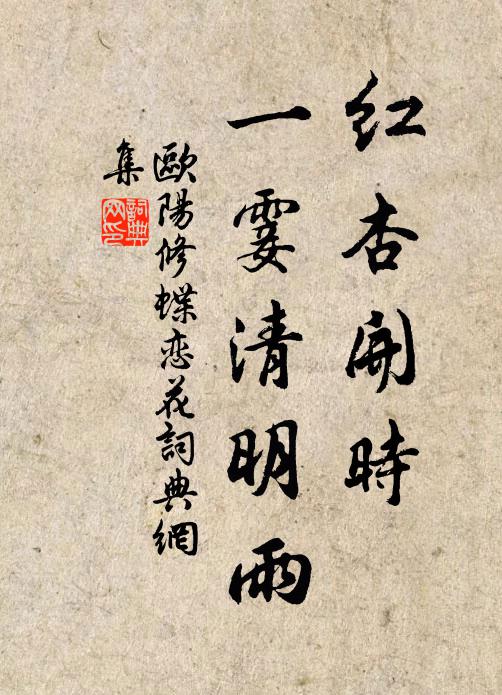 红杏開時
一霎清明雨
歐陽修蝶恋花詞典網
集
詞典
网印